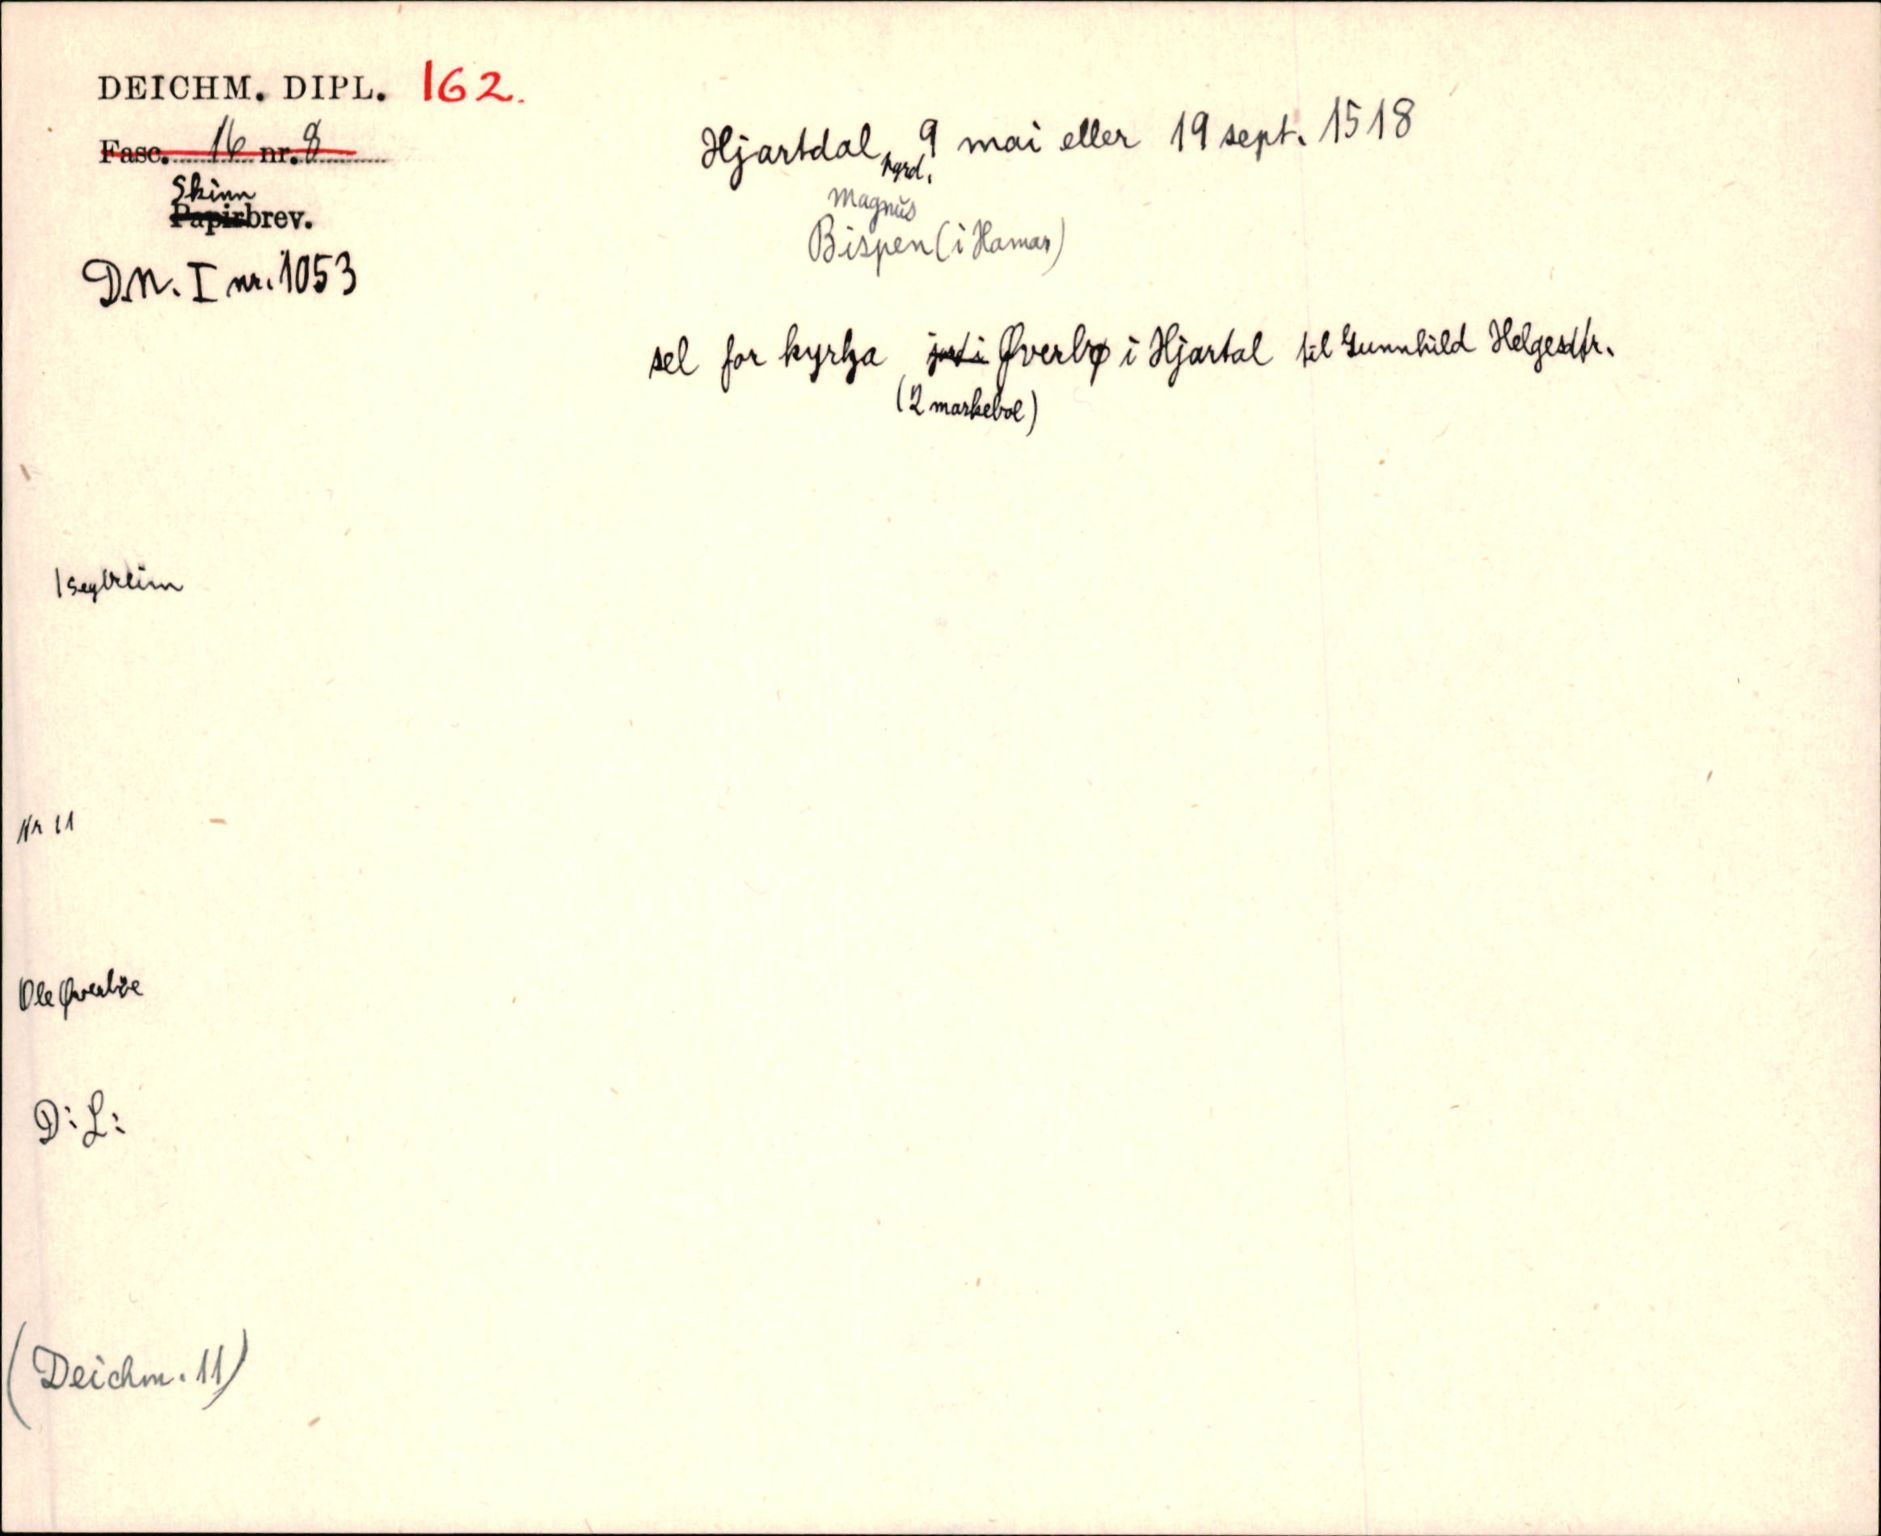 DEICHM. DIPL. 162.
Fasc. 16 nr. 8
Skinn
Papirbrev.
D.N. I nr. 1053
Hjartdal prgrd. 9 mai eller 19 sept. 1518
Magnus
Bispen (i Hamar)
sel for kyrkja jord i Øverbø i Hjartal til Gunnhild Helgesdtr.
(2 markebol)
1 seglreim
Nr 11
Ole Øverbøe
D: L:
(Deichm. 11)